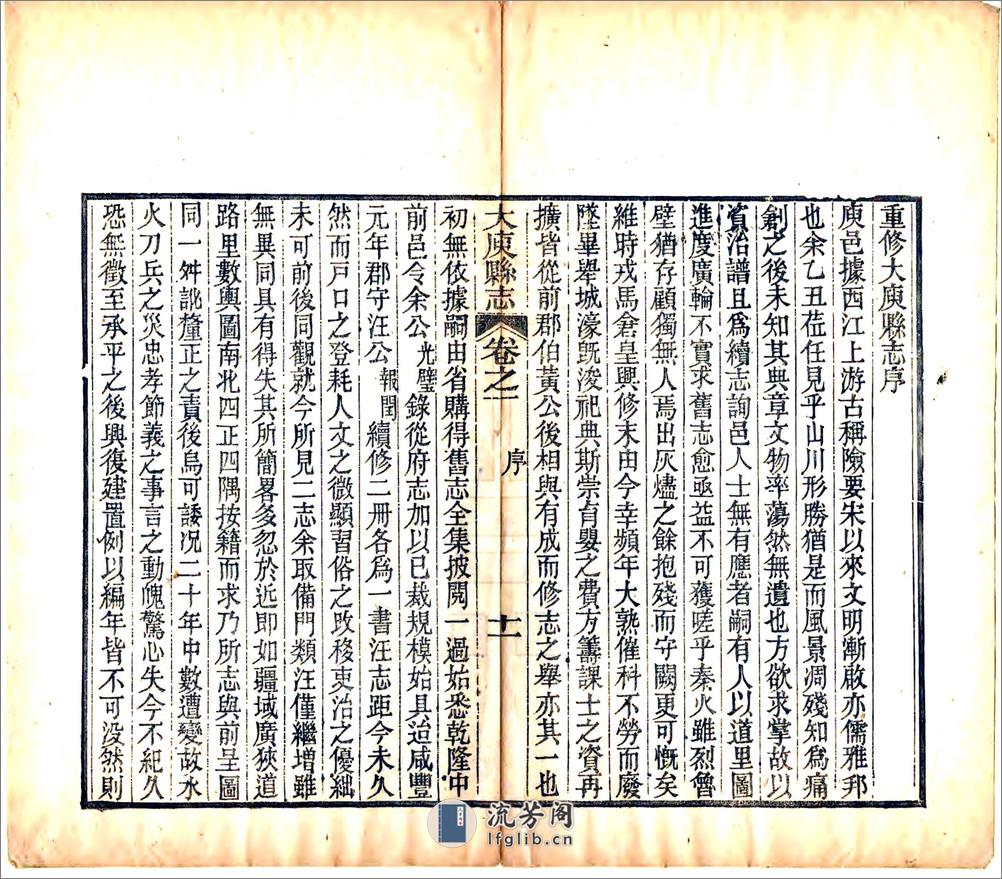 重修大庾縣志序
庾邑據西江上游古稱險要宋以來文明漸啟亦儒雅邦
也余乙丑莅任見乎山川形勝猶是而風景凋殘知爲痛
創之後未知其典章文物率蕩然無遺也方欲求掌故以
資治譜且爲續志詢邑人士無有應者嗣有人以道里圖
進度廣輪不實求舊志愈亟益不可獲嗟乎秦火雖烈魯
壁猶存顧獨無人焉出灰燼之餘抱殘而守闕更可慨矣
維時戎馬倉皇興修未由今幸頻年大熟催科不勞而廢
墜畢舉城濠既浚祀典斯崇育嬰之費方籌課士之資再
擴皆從前郡伯黃公後相與有成而修志之舉亦其一也
大庾縣志 卷之一 序 十一
初無依據嗣由省購得舊志全集披閱一過始悉乾隆中
前邑令余公光璧錄從府志加以已裁規模始具迨咸豐
元年郡守汪公報閏續修二冊各爲一書汪志距今未久
然而戸口之登耗人文之微顯習俗之改移吏治之優絀
未可前後同觀就今所見二志余取備門類汪僅繼增雖
無異同具有得失其所簡畧多忽於近即如疆域廣狹道
路里數輿圖南北四正四隅按籍而求乃所志與前呈圖
同一舛訛釐正之責後烏可諉况二十年中數遭變故水
火刀兵之災忠孝節義之事言之動魄驚心失今不紀久
恐無徵至承平之後興復建置例以編年皆不可没然則
流芳阁
lfglib.cn